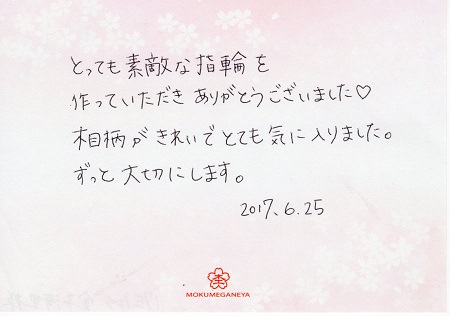 とっても素敵な指輪を
作っていただきありがとうございました♡
相柄がきれいでとても気に入りました。
ずっと大切にします。
2017.6.25
MOKUMEGANEYA